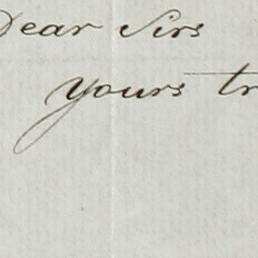 Dear Sirs
yours tr